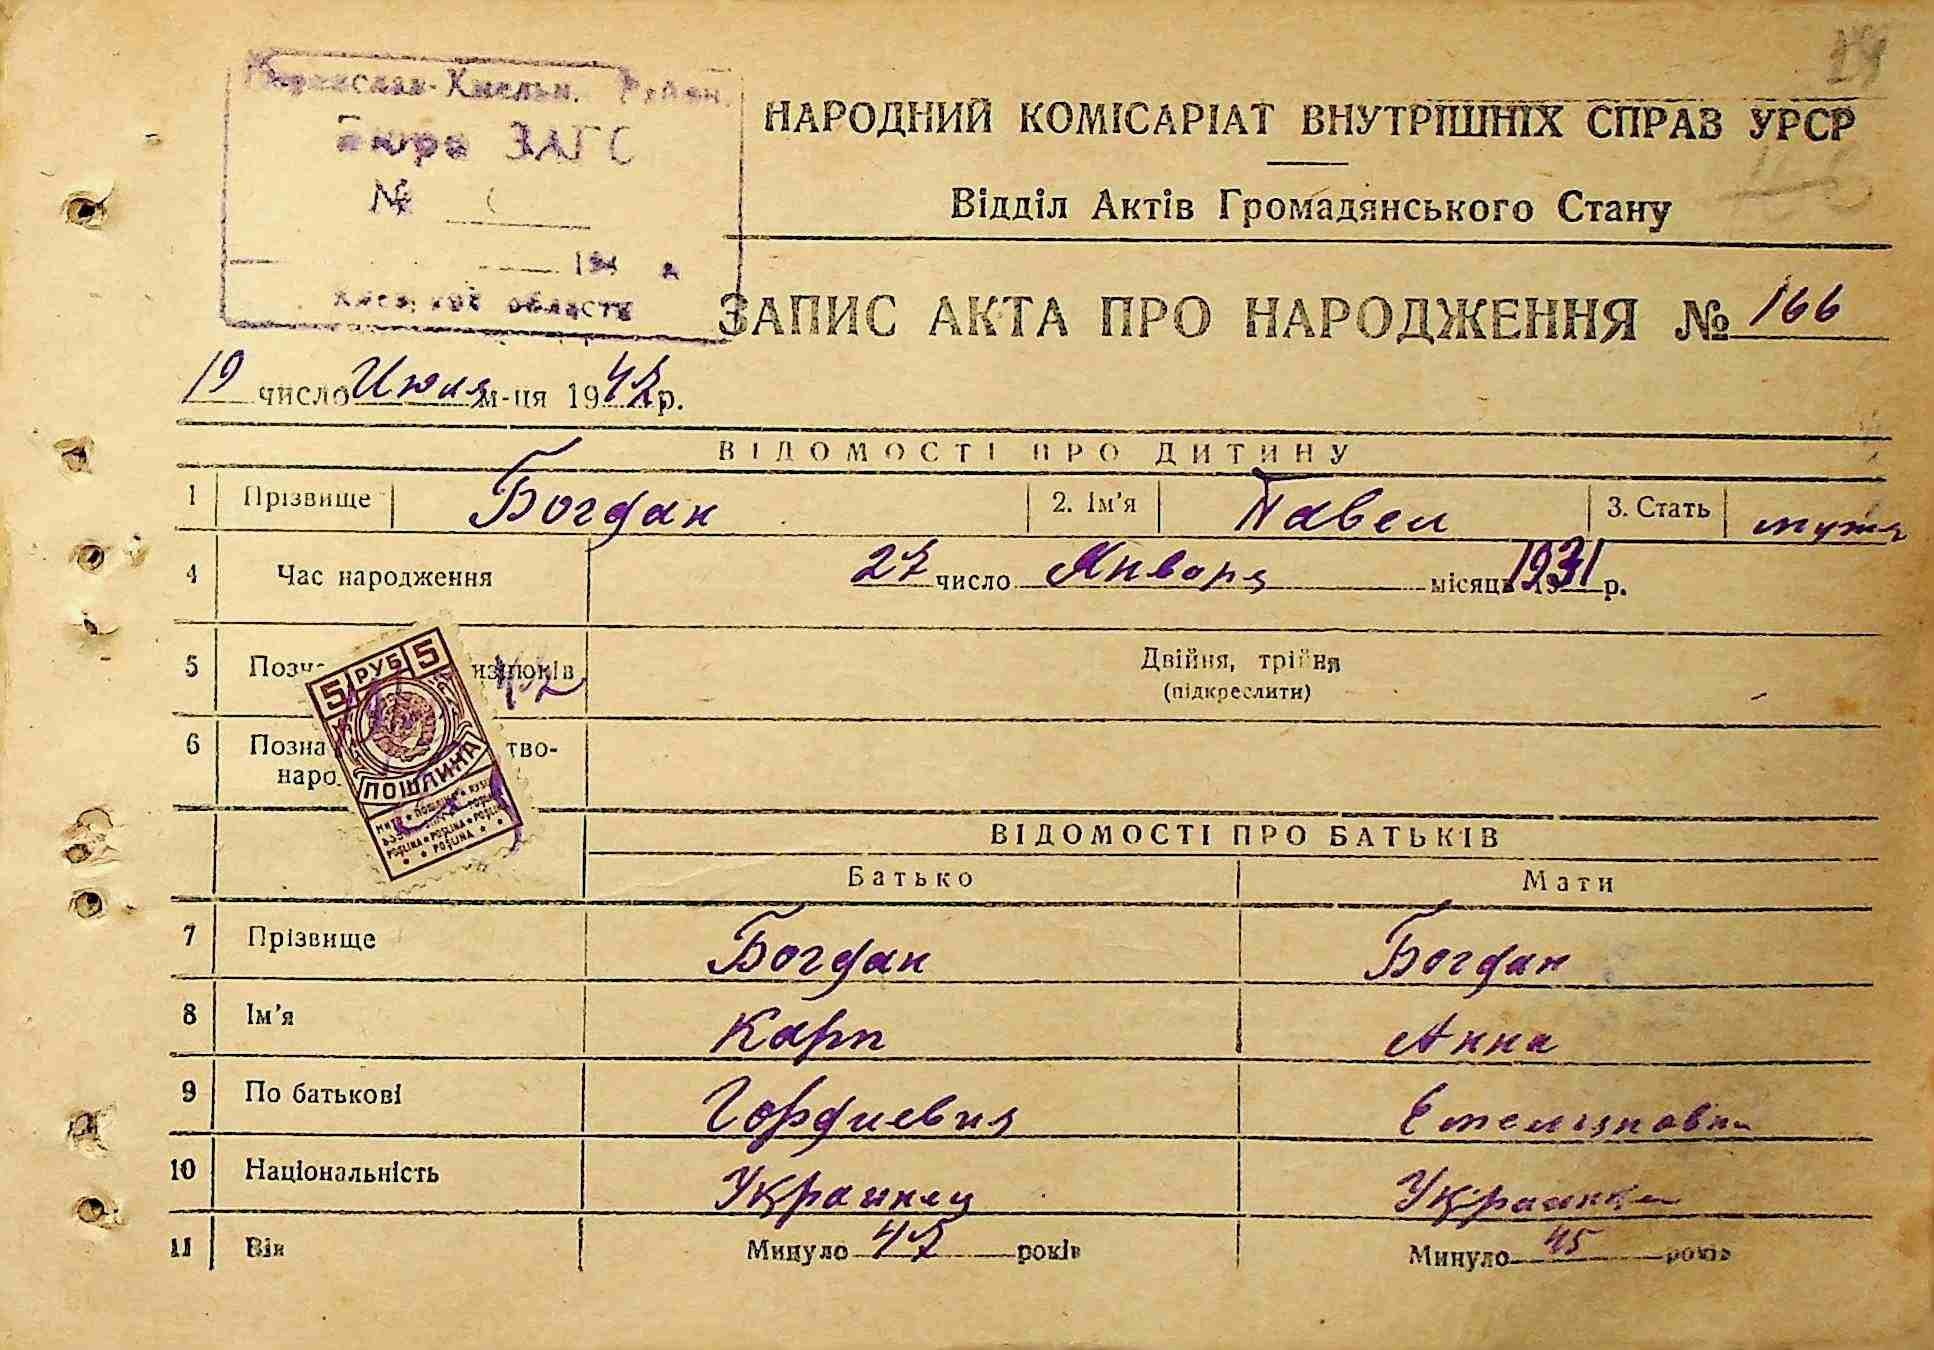 Переяслав-Хмельн. Район.
Бюро ЗАГС
№
194 г
Киевской области
НАРОДНИЙ КОМІСАРІАТ ВНУТРІШНІХ СПРАВ УРСР
Відділ Актів Громадянського Стану
ЗАПИС АКТА ПРО НАРОДЖЕННЯ № 166
19 число Июля м-ця 1947 р.
ВІДОМОСТІ ПРО ДИТИНУ
1 Прізвище Богдан 2. Ім'я Павел 3. Стать муж
4 Час народження 27 число Января місяця 1931 р.
5 Двійня, трійня
(підкреслити)
6
5 РУБ 5
ПОШЛИНА
ВІДОМОСТІ ПРО БАТЬКІВ
Батько Мати
7 Прізвище Богдан Богдан
8 Ім'я Карп Анна
9 По батькові Гордиевич Емельяновна
10 Національність Украинец Украинка
11 Вік Минуло 47 років Минуло 45 років